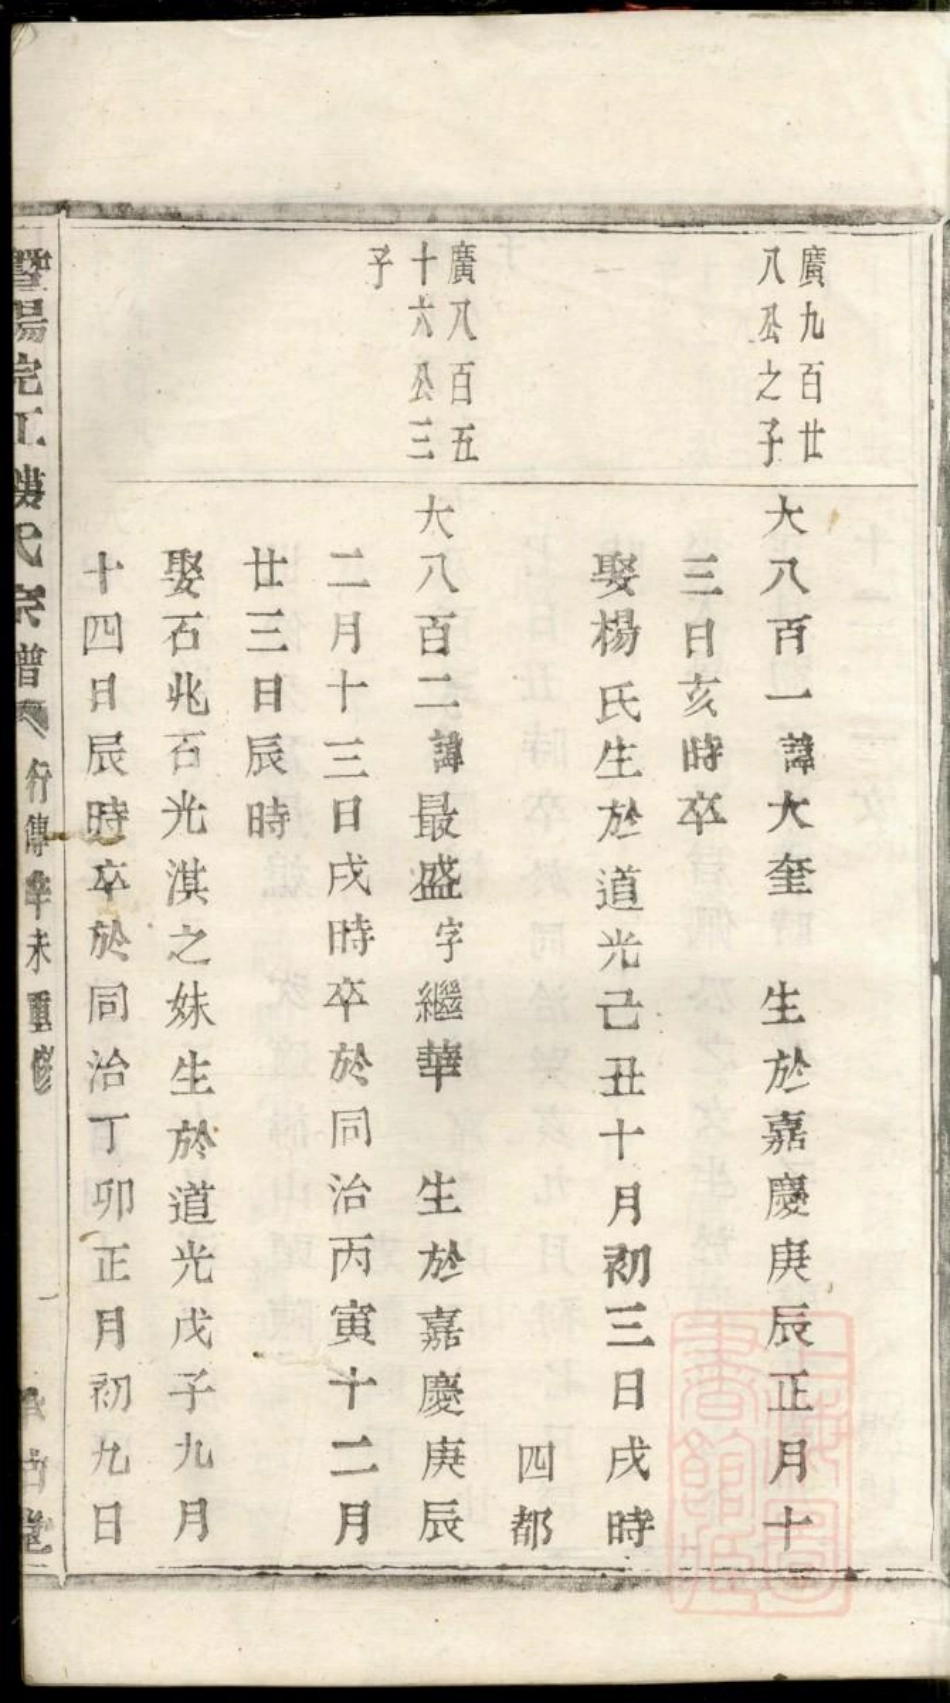 廣九百廿
八公之子
大八百一諱大奎 生於嘉慶庚辰正月十
三日亥時卒
娶楊氏生於道光己丑十月初三日戌時
四都
廣八百五
十六公三
子
大八百二諱最盛字繼華 生於嘉慶庚辰
二月十三日戌時卒於同治丙寅十二月
廿三日辰時
娶石兆石光淇之妹生於道光戊子九月
十四日辰時卒於同治丁卯正月初九日
暨陽浣江樓氏宗譜 行傳辛未重修